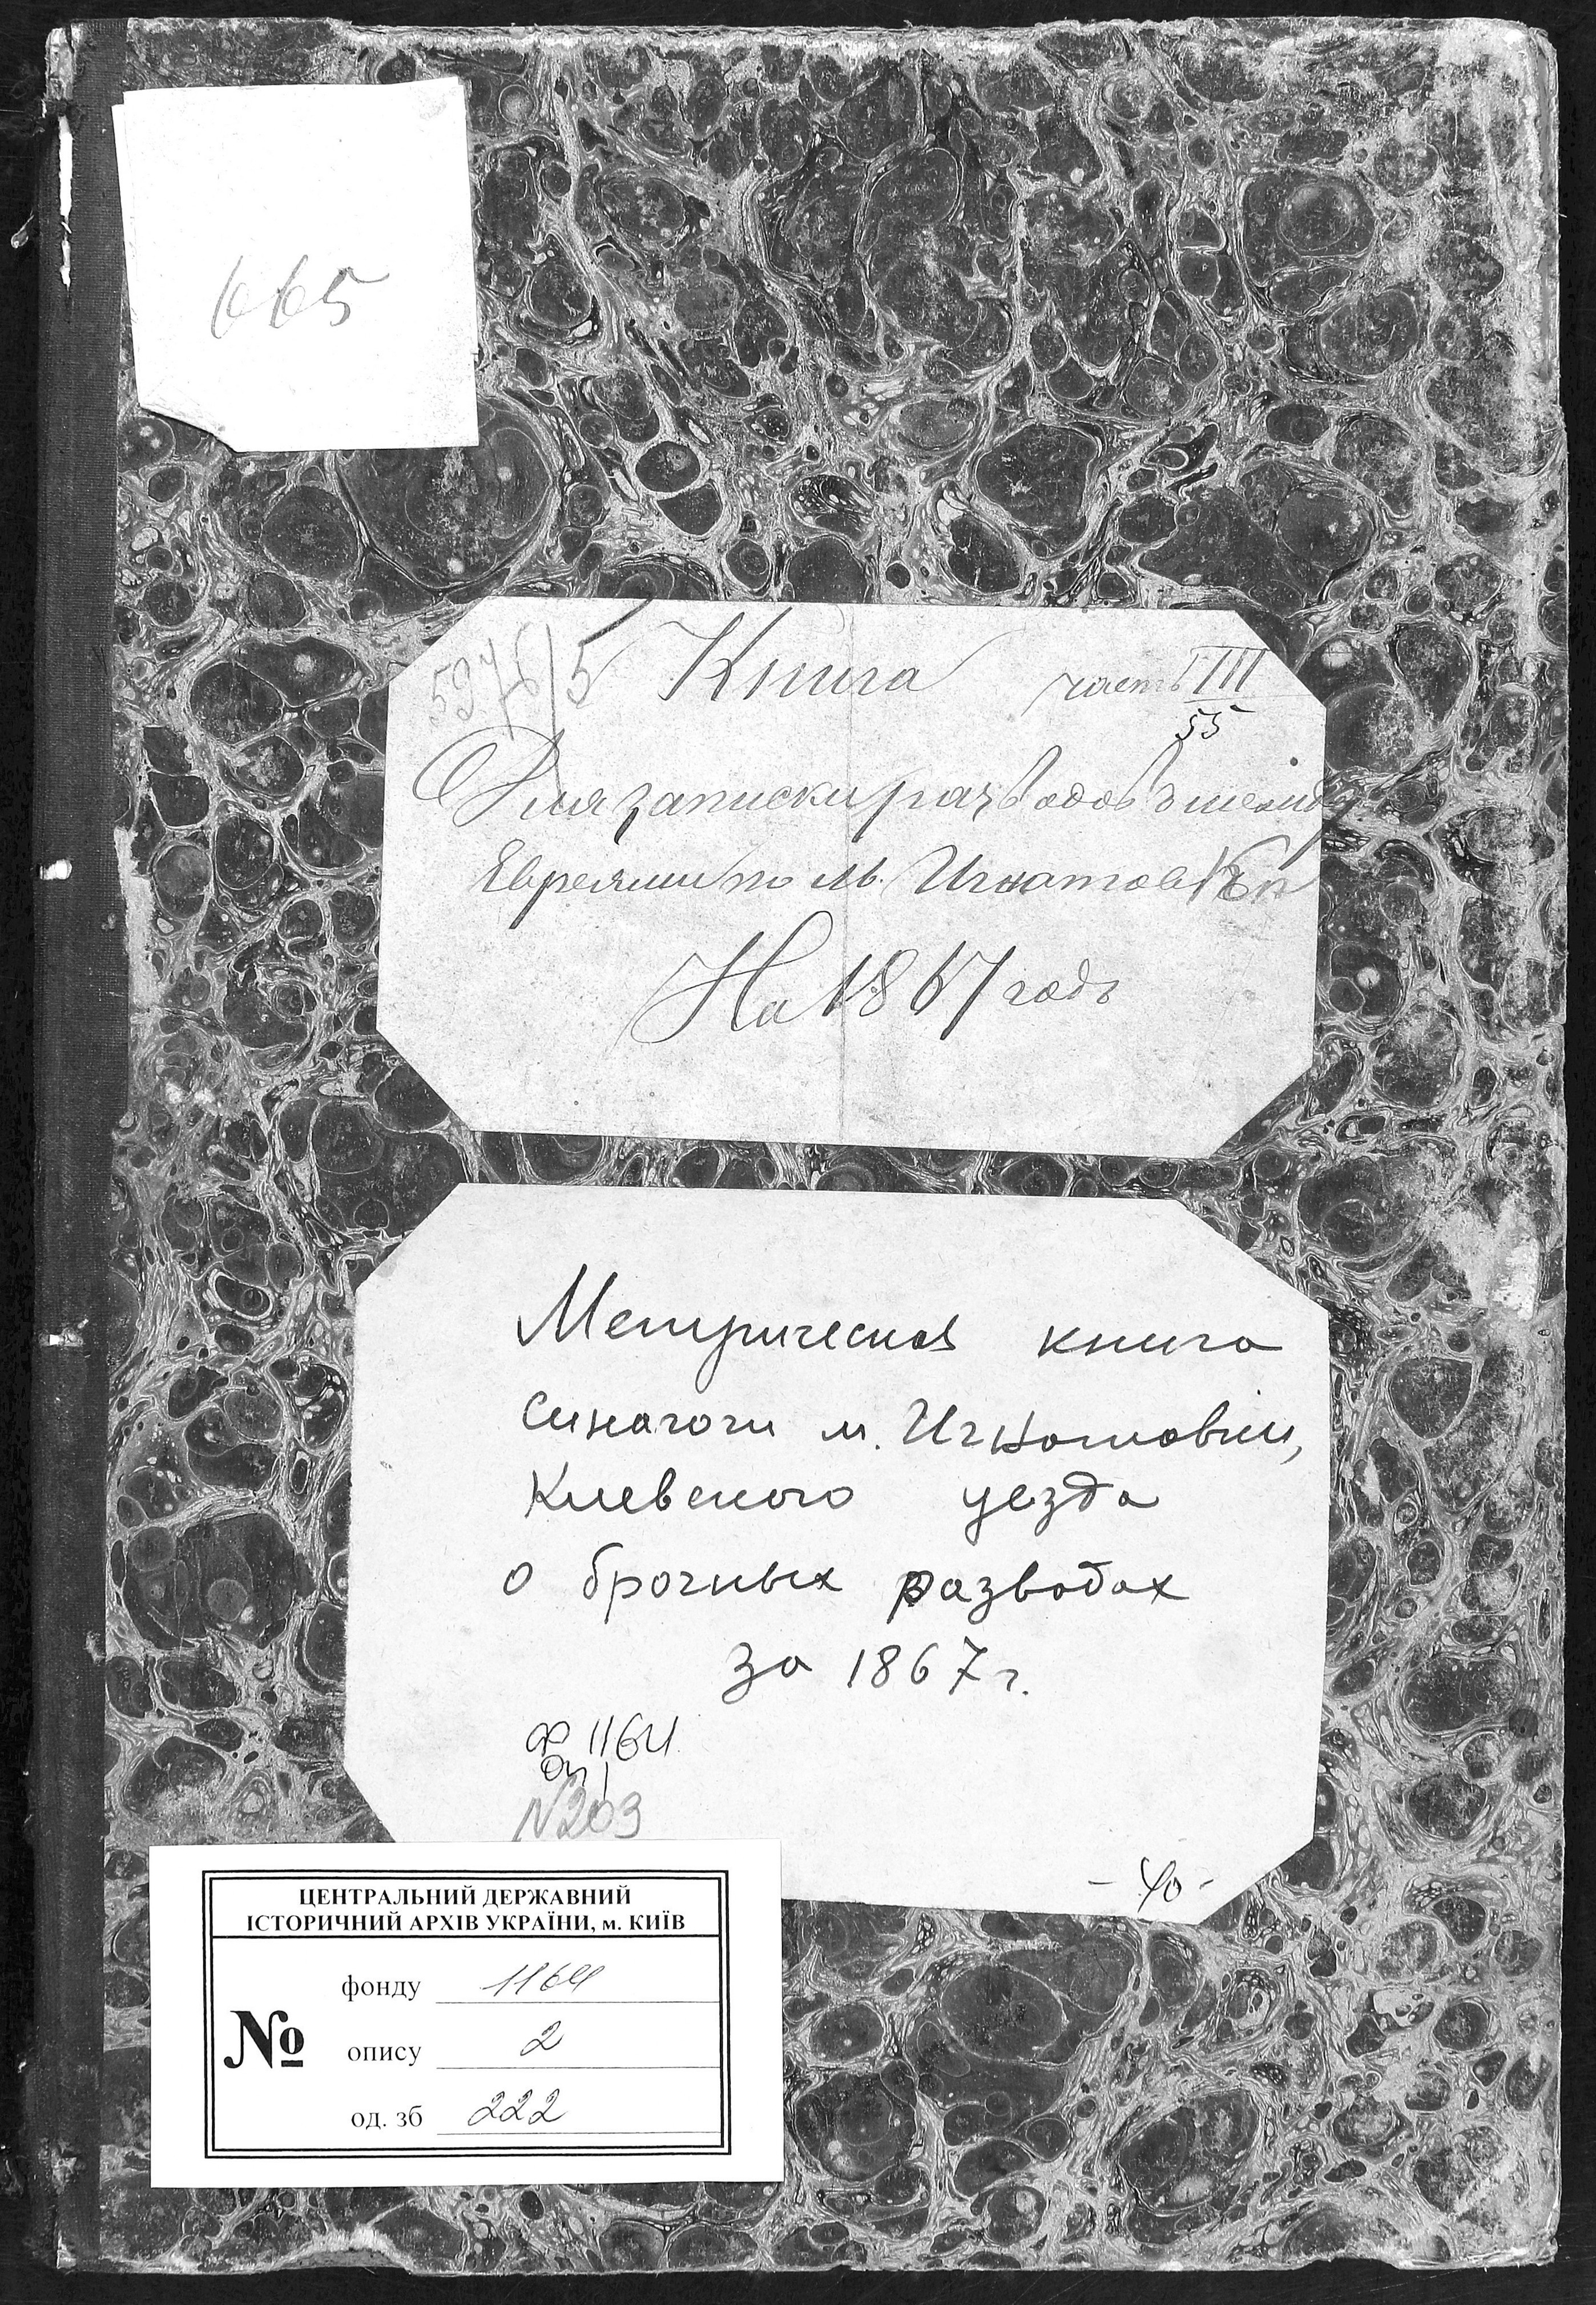 665
5976/5 Книга часть III
55
Для записки разводовъ между
Евреями по м. Игнатовкѣ
На 1867 годъ
Метрическая книга
синагоги м. Игнатовки,
Киевского уезда
о брачных разводах
за 1867 г.
Ф 1164
Оп 1
N 203
- 40 -
ЦЕНТРАЛЬНИЙ ДЕРЖАВНИЙ
ІСТОРИЧНИЙ АРХІВ УКРАЇНИ, м. КИЇВ
№
фонду 1164
опису 2
од. зб 222